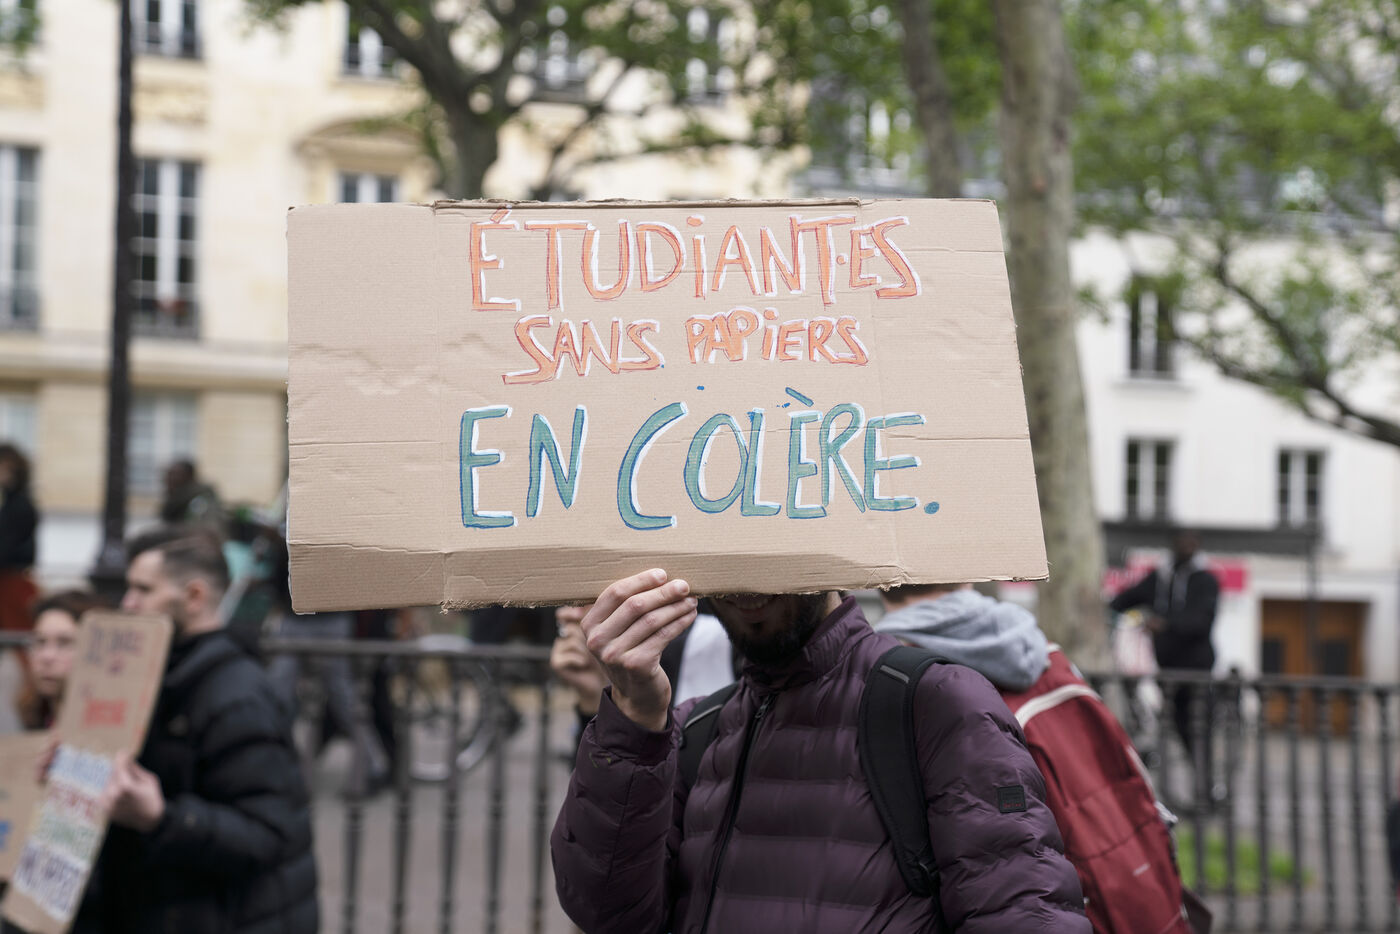 ÉTUDiANT·ES
SANS PAPiERS
EN COLÈRE.